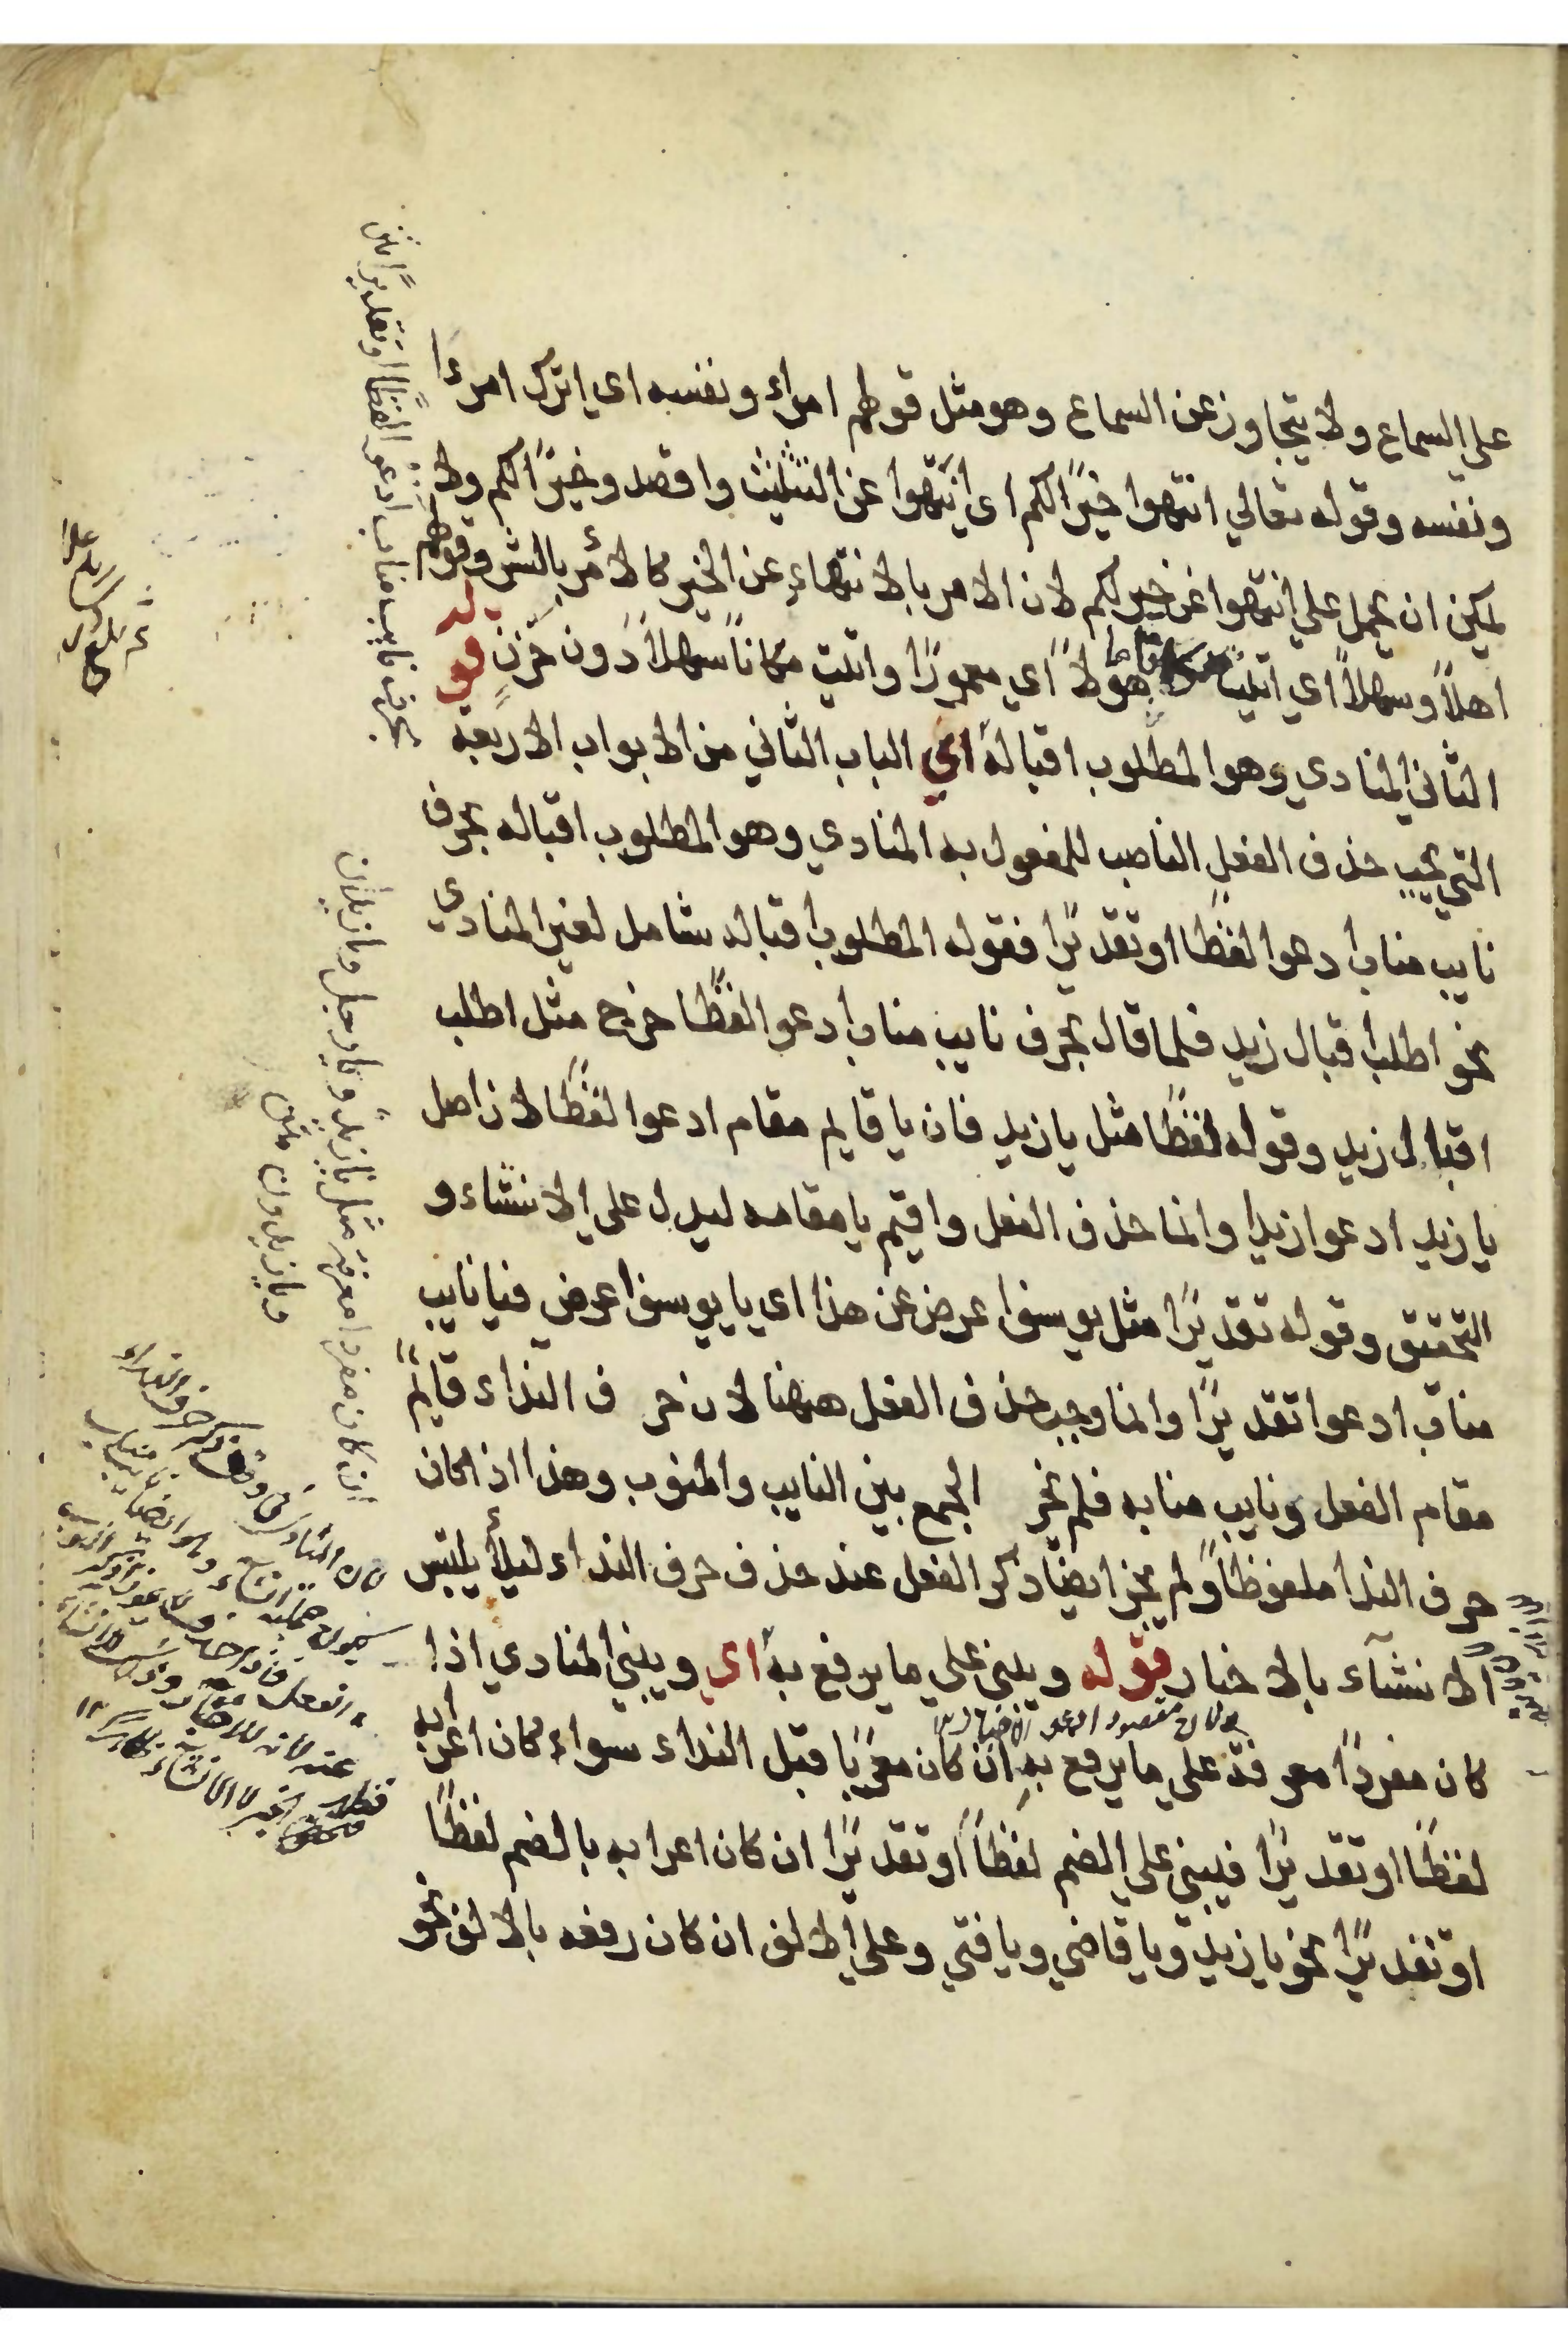 علي السماع ولا يتجاوز عن السماع وهو مثل قولهم امراء ونفسه اى اترك امرءًا
ونفسه وقوله تعالي انتهوا خيرًا لكم اى انتهوا عن التثليث واقصدوخيرًا لكم ولا
يمكن ان يحمل علي انتهوا عن خير لكم لان الامر بالانتهاء عن الخير كالامر بالشر وقولهم
اهلاً وسهلاً اي اتيت مكانا ماهولاً اي معمورًا واتيت مكاناً سهلاً دون حزن قوله
الثاني المنادي وهو المطلوب اقباله اي الباب الثاني من الابواب الاربعة
التي يجب حذف الفعل الناصب للمفعول به المنادي وهو المطلوب اقباله بحرف
نايب مناب ادعوا لفظًا اوتقديرًا فقوله المطلوب اقباله شامل لغير المنادي
نحو اطلب اقبال زيد فلما قال بحرف نايب مناب ادعوا لفظًا خرج مثل اطلب
اقبال زيد وقوله لفظًا مثل يا زيد فان يا قايم مقام ادعوا لفظًا لان اصل
يا زيد ادعوا زيدا وانما حذف الفعل واقيم يا مقامه ليدل علي الانشاء و
التحقيق وقوله تقديرًا مثل يوسف اعرض عن هذا اى يا يوسف اعرض فيا نايب
مناب ادعوا تقديرًا وانما وجب حذف الفعل ههنا لان حر ف النداء قايم
مقام الفعل ونايب منابه فلم نجز الجمع بين النايب والمنوب وهذا اذا كان
حرف الندا ملفوظاً ولم يجز ايضًا ذكر الفعل عند حذف حرف النداء ليلا يلتبس
الانشآء بالاخبار قوله ويبني علي ما يرفع به اى ويبني المنادي اذا
كان مفردًا معرفة علي ما يرفع به ان كان معربًا قبل النداء سواء كان اعرابه
لفظًا اوتقديرًا فيبني علي الضم لفظاً أو تقديرًا ان كان اعرابه بالضم لفظًا
اوتقديرًا نحو يا زيد ويا قاضي ويا فتي وعلي الالف ان كان رفعه بالالف نحو
بحرف نايب مناب ادعو لفظًا او تقديرًا
ان كان مفردا معرفة مثل يا زيد ويا رجل ويا زيدان
ويا زيدون